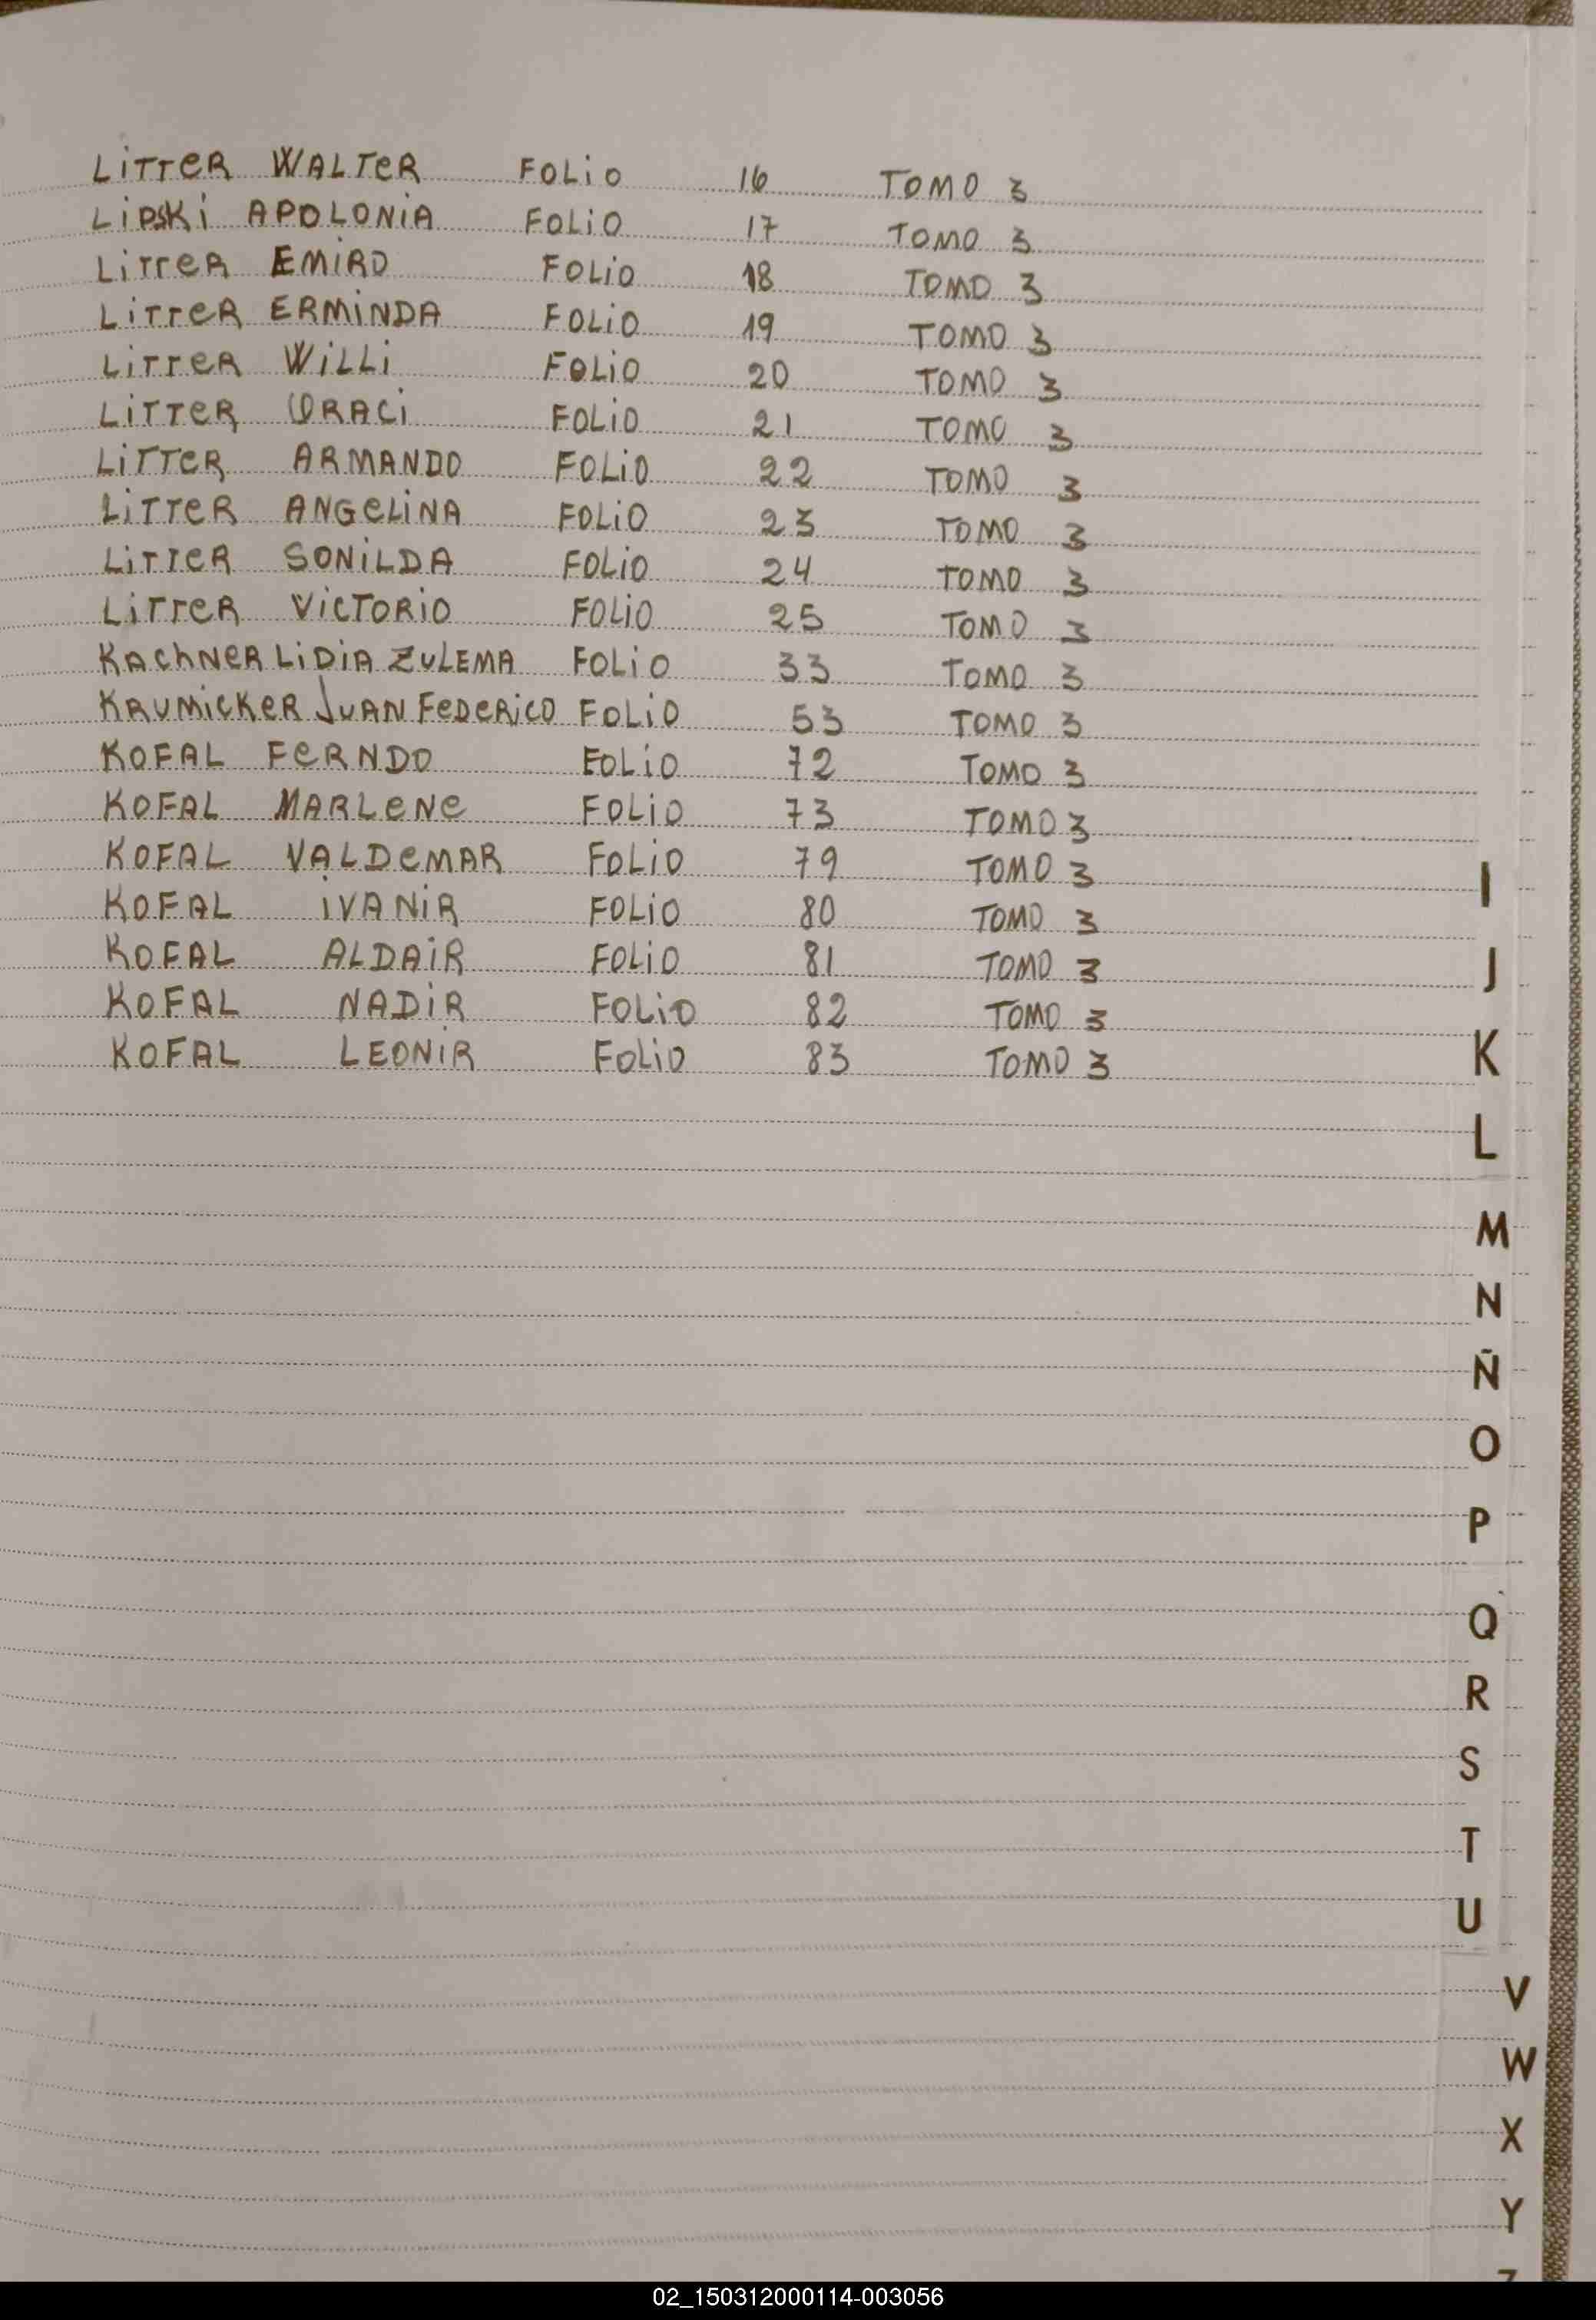 LITTER WALTER FOLIO 16 TOMO 3
LIPSKI APOLONIA FOLIO 17 TOMO 3
LITTER EMIRO FOLIO 18 TOMO 3
LITTER ERMINDA FOLIO 19 TOMO 3
LITTER WILLI FOLIO 20 TOMO 3
LITTER FOLIO 21 TOMO 3
LITTER ARMANDO FOLIO 22 TOMO 3
LITTER ANGELINA FOLIO 23 TOMO 3
LITTER SONILDA FOLIO 24 TOMO 3
LITTER VICTORIO FOLIO 25 TOMO 3
KACHNER LIDIA ZULEMA FOLIO 33 TOMO 3
KRUMICKER JUAN FEDERICO FOLIO 53 TOMO 3
KOFAL FERNDO FOLIO 72 TOMO 3
KOFAL MARLENE FOLIO 73 TOMO 3
KOFAL VALDEMAR FOLIO 79 TOMO 3
KOFAL IVANIR FOLIO 80 TOMO 3
KOFAL ALDAIR FOLIO 81 TOMO 3
KOFAL NADIR FOLIO 82 TOMO 3
KOFAL LEONIR FOLIO 83 TOMO 3
I
J
K
L
M
N
Ñ
O
P
Q
R
S
T
U
V
W
X
Y
02_150312000114-003056